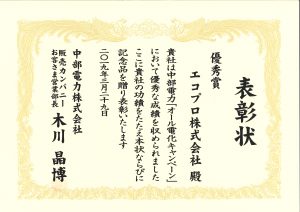 表彰状
優秀賞
エコプロ株式会社 殿
貴社は中部電力「オール電化キャンペーン」
において優秀な成績を収められました
ここに貴社の功績をたたえ本状ならびに
記念品を贈り表彰いたします
二〇一九年三月二十九日
中部電力株式会社
販売カンパニー
お客さま営業部長
木川 晶博